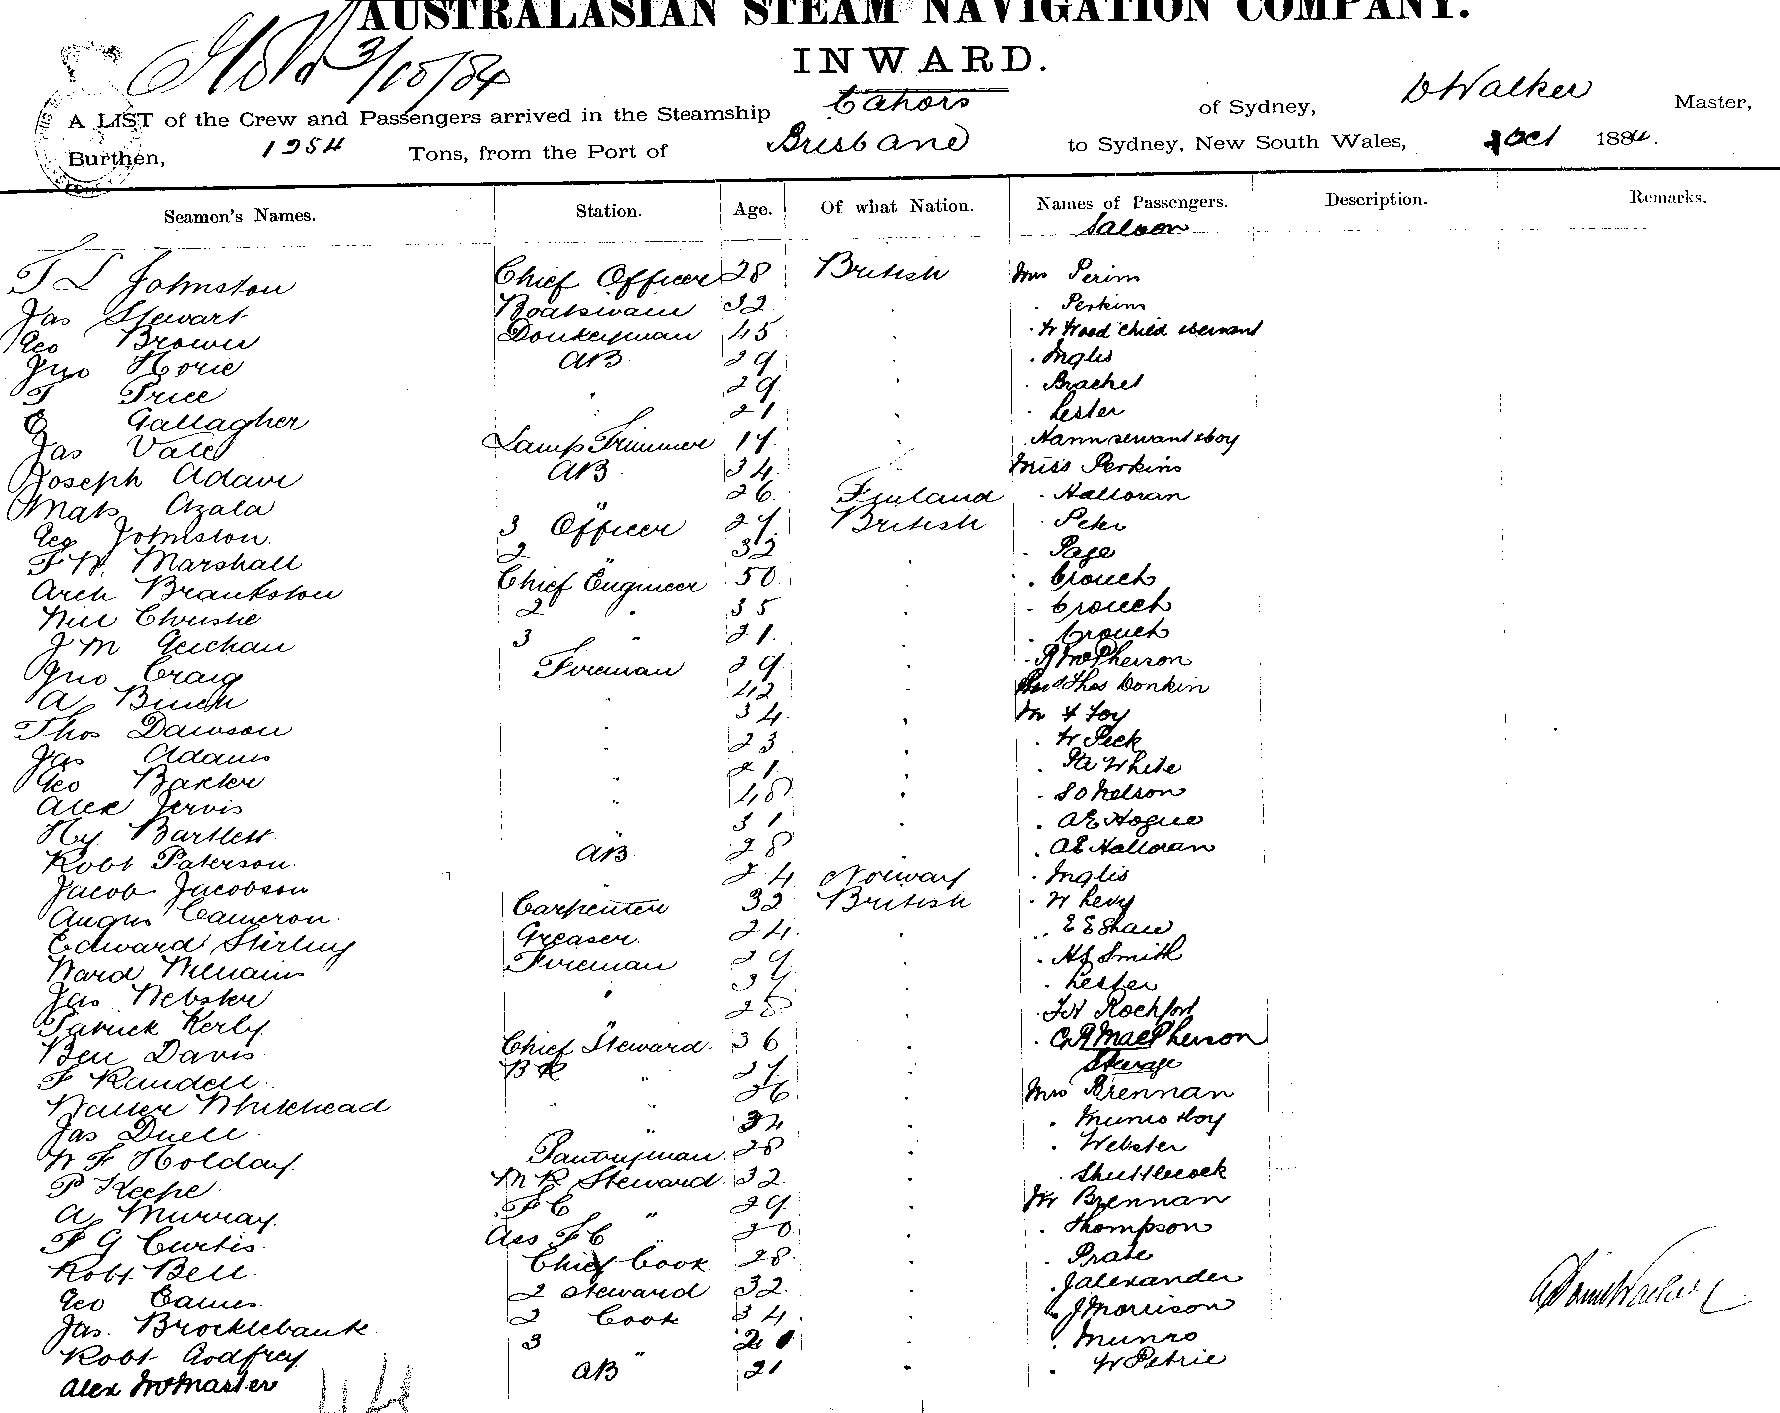 AUSTRALASIAN STEAM NAVIGATION COMPANY.
INWARD.
3/10/84
A LIST of the Crew and Passengers arrived in the Steamship Cahors of Sydney, D Walker Master,
Burthen, 1254 Tons, from the Port of Brisbane to Sydney, New South Wales, 2 Oct 1884.
Seamen's Names. Station. Age. Of what Nation. Names of Passengers. Description. Remarks.
Saloon
T L Johnston Chief Officer 28 British Mrs Perim
Jas Stewart Boatswain 32 . . Perkins
Geo Brown Donkeyman 45 . . W Wood child & servant
Jno Horie AB 29 . . Inglis
T Price . 29 . . Brachet
Gallagher 21 . . Lester
Jas Vale Lamp Trimmer 17 . Hann servant & boy
Joseph Adam AB 34 Miss Perkins
Mats Azala " 26 Finland . Halloran
Geo Johnston. 3 Officer 27 British . Peter
F W. Marshall 2 " 32 . Page
Arch Brankston Chief Engineer 50 . . Crouch
Neil Christie 2 " 35 . . Crouch
J M Geichan 3 " 21. . . Crouch
Jno Craig Fireman 29 . . R McPherson
A Binch . 42 . Thos Donkin
Thos Dawson . 34 . Mr & Foy
Jas Adams . 23 . . W Peck
Geo Baxter . 21 . . White
Alex Jervis . 48 . . S O Nelson
Hy Bartlett . 31 . . A E Hogue
Robt Paterson AB 28 . . A E Halloran
Jacob Jacobson . 24 Norway . Inglis
Angus Cameron. Carpenter 32 British . W Levy
Edward Stirling Greaser. 24 . . E E Shaw
Ward Williams Fireman 29 . . H S Smith
Jas Webster . 37 . . Lester
Patrick Kerby " 28 . . F H Rochfort
Ben Davis Chief Steward 36 . . C R MacPherson
Steerage
F Randell BR " 27 .
Walter Whitehead . " 26 . Mrs Brennan
Jas Duell " 32 . . Munro & boy
W F Holday Pantryman 28 . . Webster
P Keepe M R Steward 32 . . Shuttlecock
A Murray F C " 29 . Mr Brennan
F G Curtis Ass F C " 20 . . Thompson
Robt Bell. Chief Cook 28 . . Prate
Geo Eames 2 Steward 32 . . J Alexander
Jas. Brocklebank 2 Cook 34 . . J Morrison
Robt Godfrey 3 " 21 . . Munro
Alex McMaster AB 21 . . W Petrie